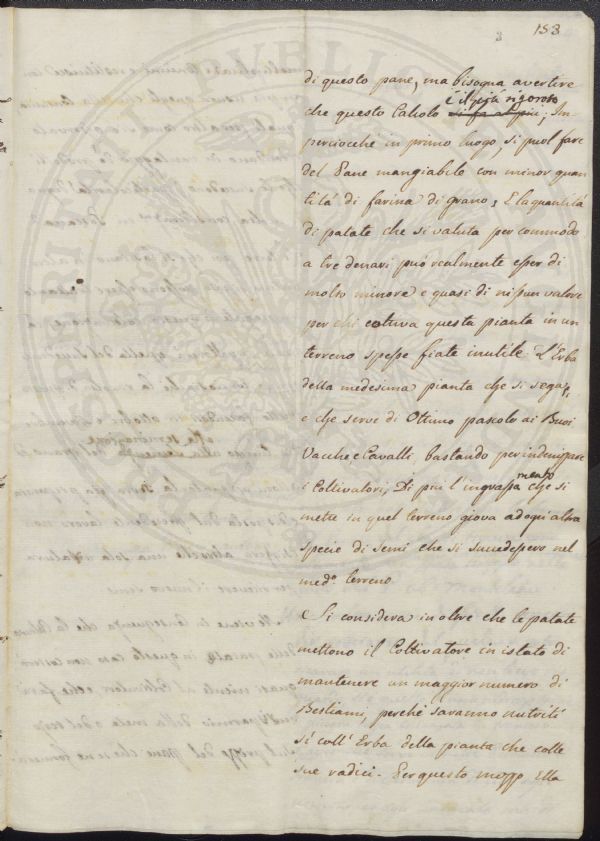 3 153
di questo pane, ma bisogna avertire
è il più rigoroso
che questo Calcolo si fa al più; Im-
perciocchè in primo luogo, si può fare
del Pane mangiabile con minor quan
titá di farina di grano; E la quantitá
di patate che si valuta per commodo
a tre denari può realmente esser di
molto minore e quasi di nissun valore
per chi coltiva questa pianta in un
terreno spesse fiate inutile. L'Erba
della medesima pianta che si sega
e che serve di Ottimo pascolo ai Buoi
Vacche, e Cavalli, bastando per indenissare
i Coltivatori; Di più l'ingrassamento che si
mette in quel terreno giova ad ogni altra
specie di semi che si succedessero nel
medº terreno
Si considera in oltre che le patate
mettono il Coltivatore in istato di
mantenere un maggior numero di
Bestiami, perchè saranno nutriti
sì coll' Erba della pianta che colle
sue radici. Per questo mezzo Ella